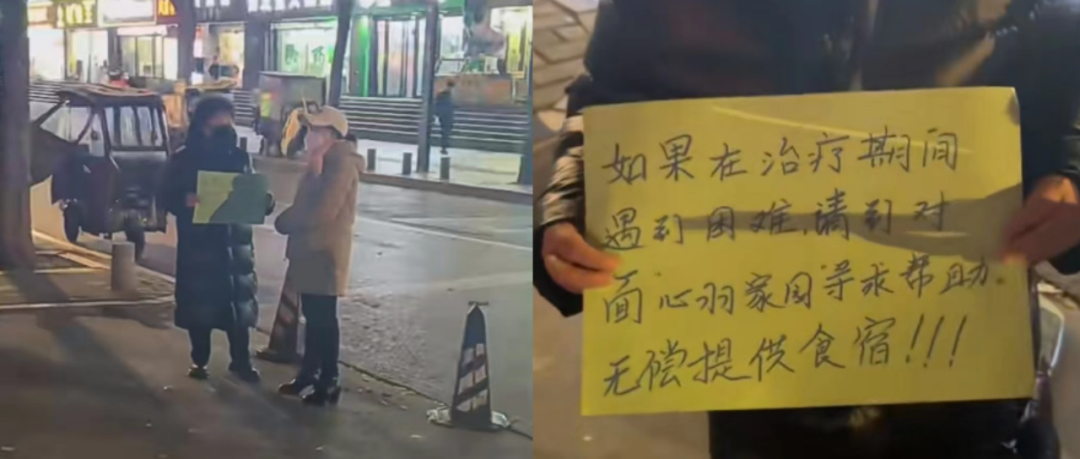 如果在治疗期间
遇到困难,请到对
面心羽家园寻求帮助.
无偿提供食宿!!!